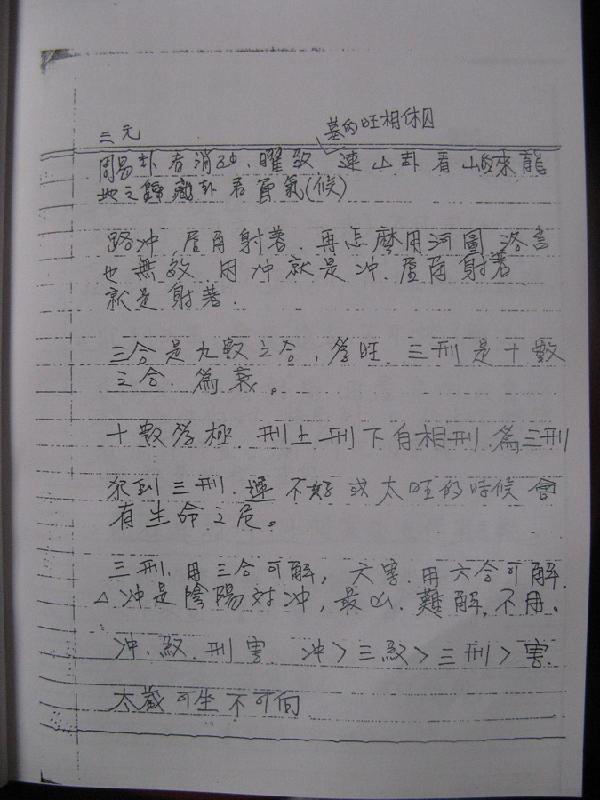 墓的旺相休囚
三元
周易卦看消砂、曜敂 連山卦看山峦來龍
地之鐘 卦看 氣(候)
路冲,屋角射著.再怎麼用河圖 洛書
也無效.因冲就是冲.屋角射著
就是射著.
三合是九數之合,為旺.三刑是十數
之合.為衰。
十數為極.刑上刑下自相刑.為三刑
犯到三刑.運不好或太旺的時候會
有生命之危。
三刑.用三合可解,六害.用六合可解.
△冲是陰陽对冲,最凶.難解,不用、
冲.紋.刑害 冲>三紋>三刑>害.
太歲可坐不可向